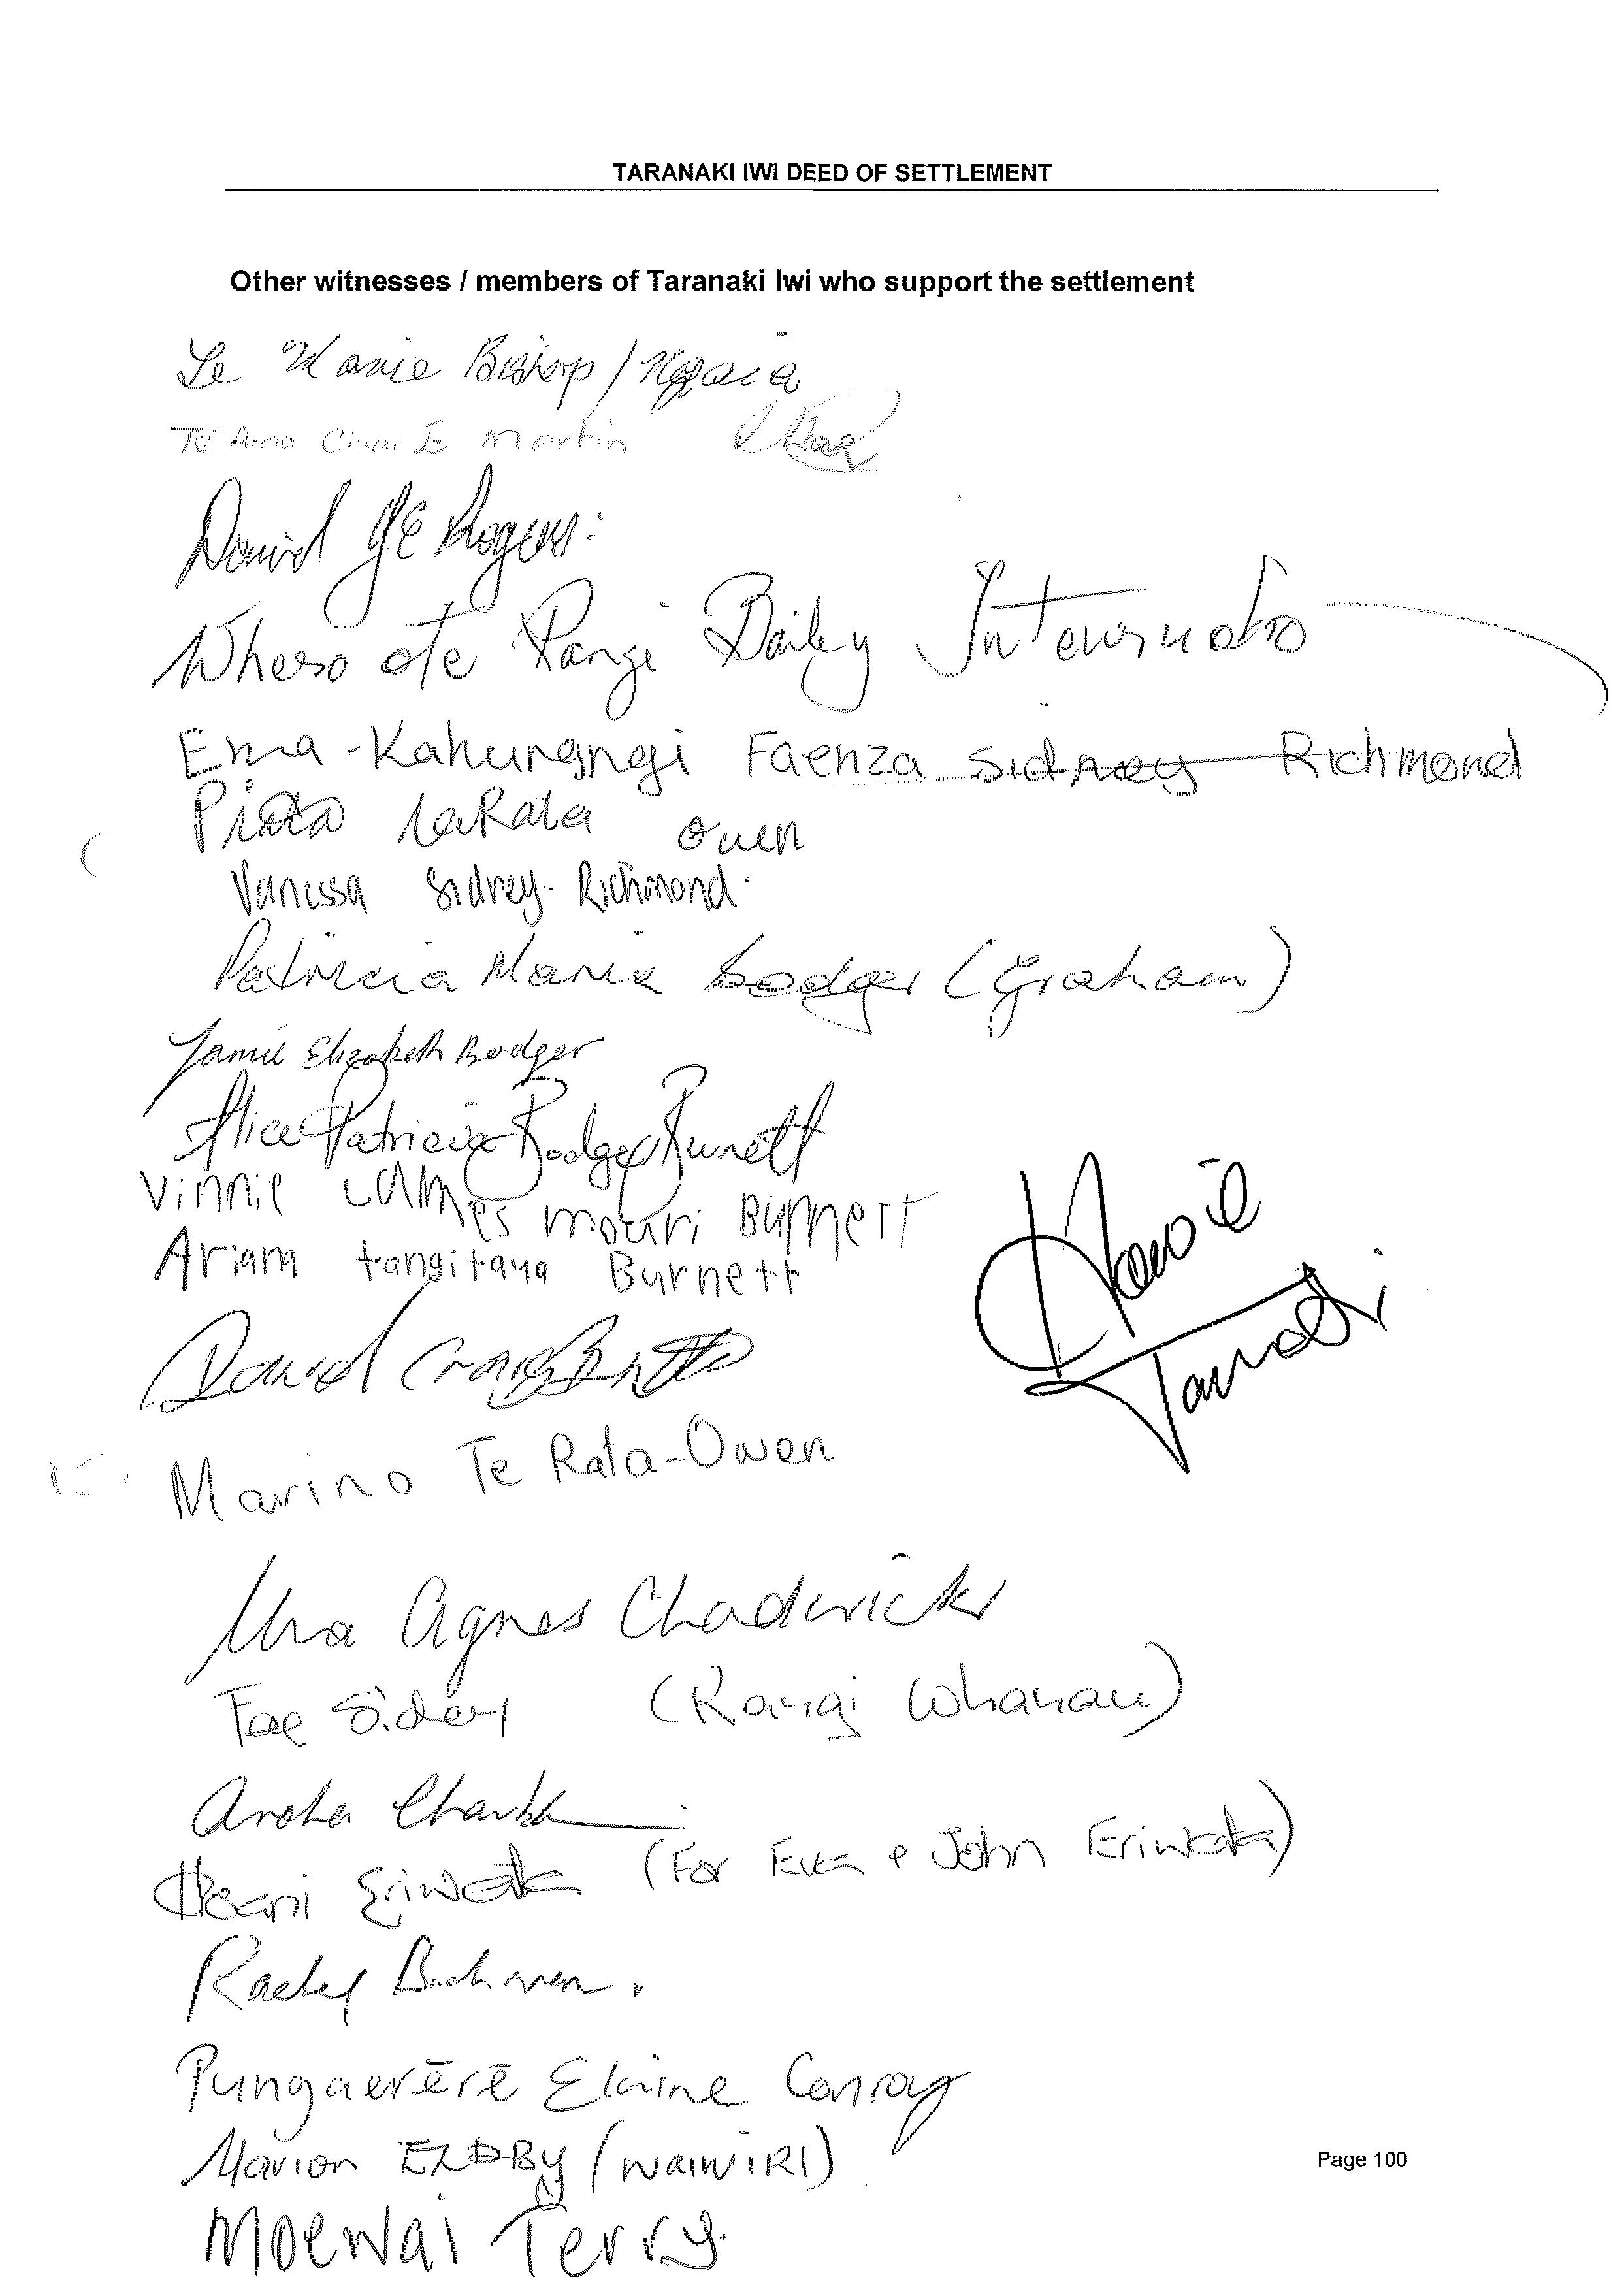 TARANAKI IWI DEED OF SETTLEMENT
Other witnesses / members of Taranaki Iwi who support the settlement
Bishop / Ngaia
Te Amo Martin
David Rogers
Whero o te Rangi Bailey
Ema-Kahurangngi Faenza Sidney Richmond
Te Rata Owen
Vanessa Sidney-Richmond
Patricia Marie Bodger (Graham)
Jamie Elizabeth Bodger
Alice Patricia Bodger Burnett
Vinnie James Mouri Burnett
Ariana tangitaya Burnett
David Craig
Marino Te Rata-Owen
Una Agnes Chadwick
Fae Sidney (Rangi Whanau)
Aroha
Eriwata (For Eva & John Eriwata)
Rachel
Pungaerērē Elaine Conroy
Marion (WAIWIRI)
Page 100
Moewai Terry